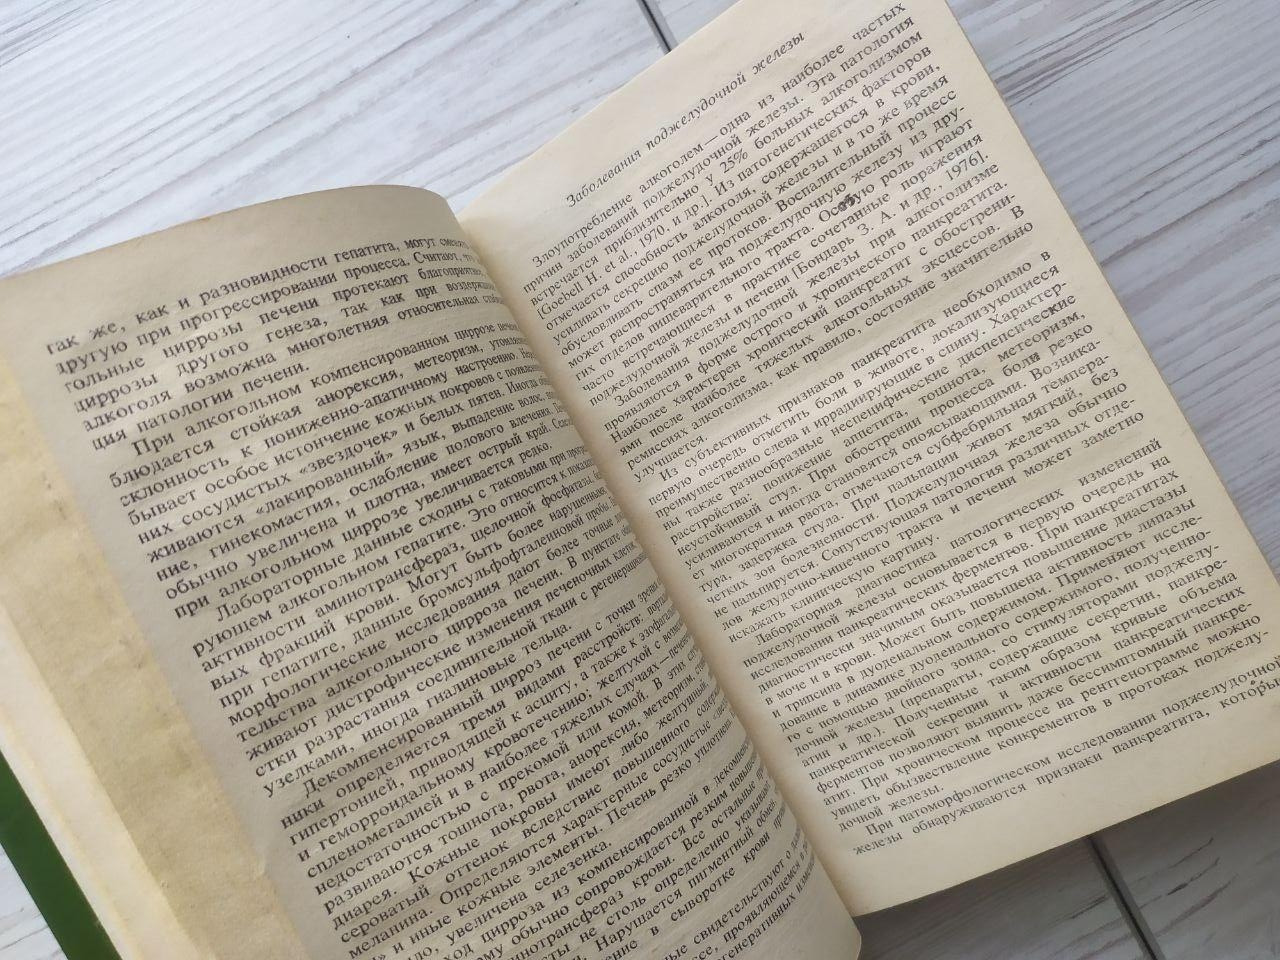 так же, как и разновидности гепатита, могут
другую при прогрессировании процесса. Считают,
гольные циррозы печени протекают
циррозы другого генеза, так как при
алкоголя возможна многолетняя относительная
ция патологии печени.
При алкогольном компенсированном циррозе
блюдается стойкая анорексия, метеоризм,
склонность к пониженно-апатичному настроению.
бывает особое истончение кожных покровов с
них сосудистых «звездочек» и белых пятен. Иногда
живаются «лакированный» язык, выпадение волос,
ние, гинекомастия, ослабление полового влечения.
обычно увеличена и плотна, имеет острый край.
при алкогольном циррозе увеличивается редко.
Лабораторные данные сходны с таковыми при
рующем алкогольном гепатите. Это относится к
активности аминотрансфераз, щелочной фосфатазы,
вых фракций крови. Могут быть более нарушенными,
при гепатите, данные бромсульфофталеиновой пробы.
морфологические исследования дают более точные
тельства алкогольного цирроза печени. В пунктате
живают дистрофические изменения печеночных
стки разрастания соединительной ткани с
узелками, иногда гиалиновые тельца.
Декомпенсированный цирроз печени с точки
ники определяется тремя видами расстройств:
гипертонией, приводящей к асциту, а также к
и геморроидальному кровотечению; желтухой с
спленомегалией и в наиболее тяжелых случаях —
недостаточностью с прекомой или комой. В этих
развиваются тошнота, рвота, анорексия, метеоризм,
диарея. Кожные покровы имеют либо желтушный,
сероватый оттенок вследствие повышенного
меланина. Определяются характерные сосудистые
и иные кожные элементы. Печень резко
увеличена селезенка.
ход цирроза из компенсированной в
обычно сопровождается резким
крови. Все остальные
не столь определенно указывают
Нарушается пигментный обмен,
в сыворотке крови
свидетельствуют о
проявляющемся в
Заболевания поджелудочной железы
Злоупотребление алкоголем — одна из наиболее частых
причин заболеваний поджелудочной железы. Эта патология
встречается приблизительно у 25% больных алкоголизмом
[Goebell H. et al., 1970, и др.]. Из патогенетических факторов
отмечается способность алкоголя, содержащегося в крови,
усиливать секрецию поджелудочной железы и в то же время
обусловливать спазм ее протоков. Воспалительный процесс
может распространяться на поджелудочную железу из дру-
гих отделов пищеварительного тракта. Особую роль играют
часто встречающиеся в практике сочетанные поражения
поджелудочной железы и печени [Бондарь З. А. и др., 1976].
Заболевания поджелудочной железы при алкоголизме
проявляются в форме острого и хронического панкреатита.
Наиболее характерен хронический панкреатит с обострени-
ями после наиболее тяжелых алкогольных эксцессов. В
ремиссиях алкоголизма, как правило, состояние значительно
улучшается.
Из субъективных признаков панкреатита необходимо в
первую очередь отметить боли в животе, локализующиеся
преимущественно слева и иррадиирующие в спину. Характер-
ны также разнообразные неспецифические диспепсические
расстройства: понижение аппетита, тошнота, метеоризм,
неустойчивый стул. При обострении процесса боли резко
усиливаются и иногда становятся опоясывающими. Возника-
ет многократная рвота, отмечаются субфебрильная темпера-
тура, задержка стула. При пальпации живот мягкий, без
четких зон болезненности. Поджелудочная железа обычно
не пальпируется. Сопутствующая патология различных отде-
лов желудочно-кишечного тракта и печени может заметно
искажать клиническую картину.
Лабораторная диагностика патологических изменений
поджелудочной железы основывается в первую очередь на
исследовании панкреатических ферментов. При панкреатитах
диагностически значимым оказывается повышение диастазы
в моче и в крови. Может быть повышена активность липазы
и трипсина в дуоденальном содержимом. Применяют иссле-
дование в динамике дуоденального содержимого, полученно-
го с помощью двойного зонда, со стимуляторами поджелу-
дочной железы (препараты, содержащие секретин, панкре-
атин и др.). Полученные таким образом кривые объема
панкреатической секреции и активности панкреатических
ферментов позволяют выявить даже бессимптомный панкре-
атит. При хроническом процессе на рентгенограмме можно
увидеть обызвествление конкрементов в протоках поджелу-
дочной железы.
При патоморфологическом исследовании поджелудочной
железы обнаруживаются признаки панкреатита, который